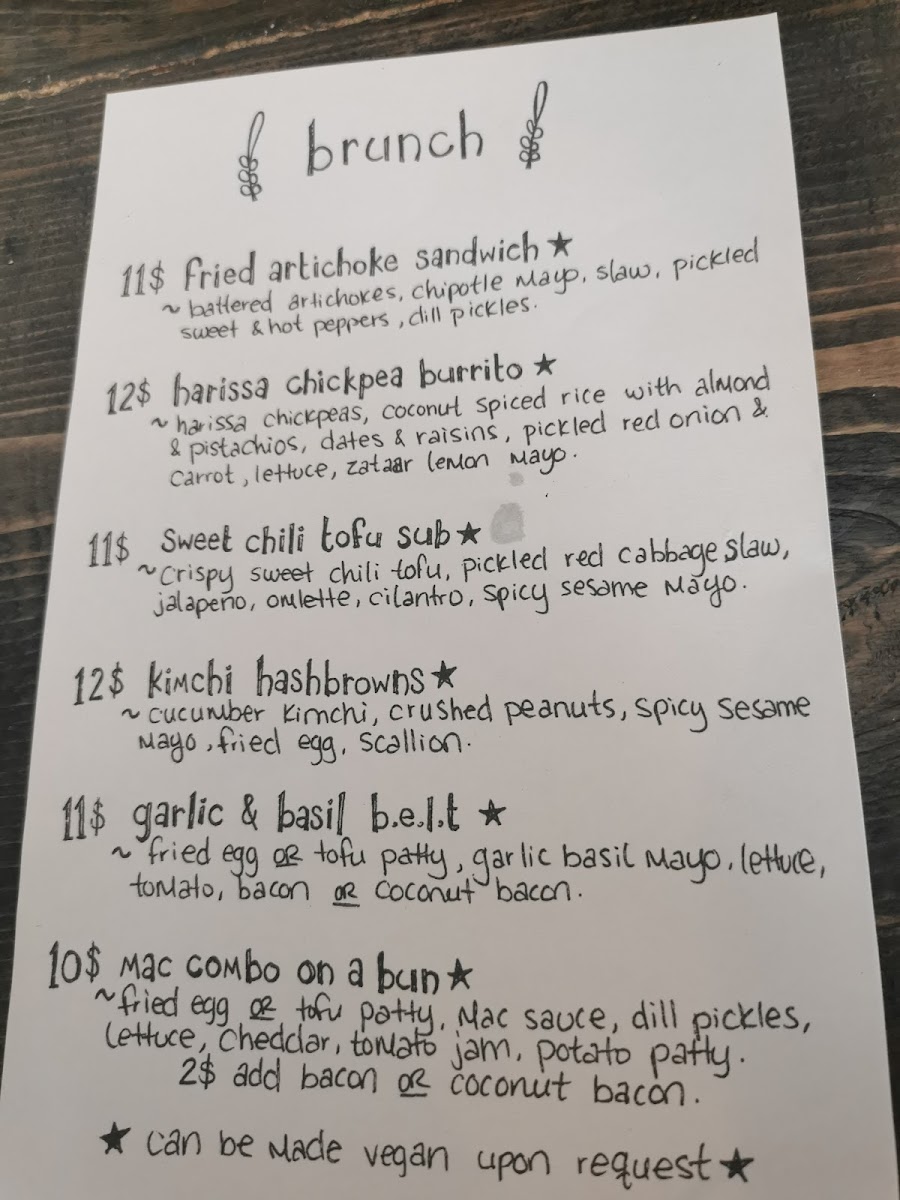 brunch
11$ fried artichoke sandwich ★
~ battered artichokes, chipotle mayo, slaw, pickled
sweet & hot peppers, dill pickles.
12$ harissa chickpea burrito ★
~ harissa chickpeas, coconut spiced rice with almond
& pistachios, dates & raisins, pickled red onion &
carrot, lettuce, zataar lemon mayo.
11$ sweet chili tofu sub ★
~ crispy sweet chili tofu, pickled red cabbage slaw,
jalapeño, omlette, cilantro, spicy sesame mayo.
12$ kimchi hashbrowns ★
~ cucumber kimchi, crushed peanuts, spicy sesame
mayo, fried egg, scallion.
11$ garlic & basil b.e.l.t ★
~ fried egg OR tofu patty, garlic basil mayo, lettuce,
tomato, bacon OR coconut bacon.
10$ mac combo on a bun ★
~ fried egg OR tofu patty, mac sauce, dill pickles,
lettuce, cheddar, tomato jam, potato patty.
2$ add bacon OR coconut bacon.
★ can be made vegan upon request ★